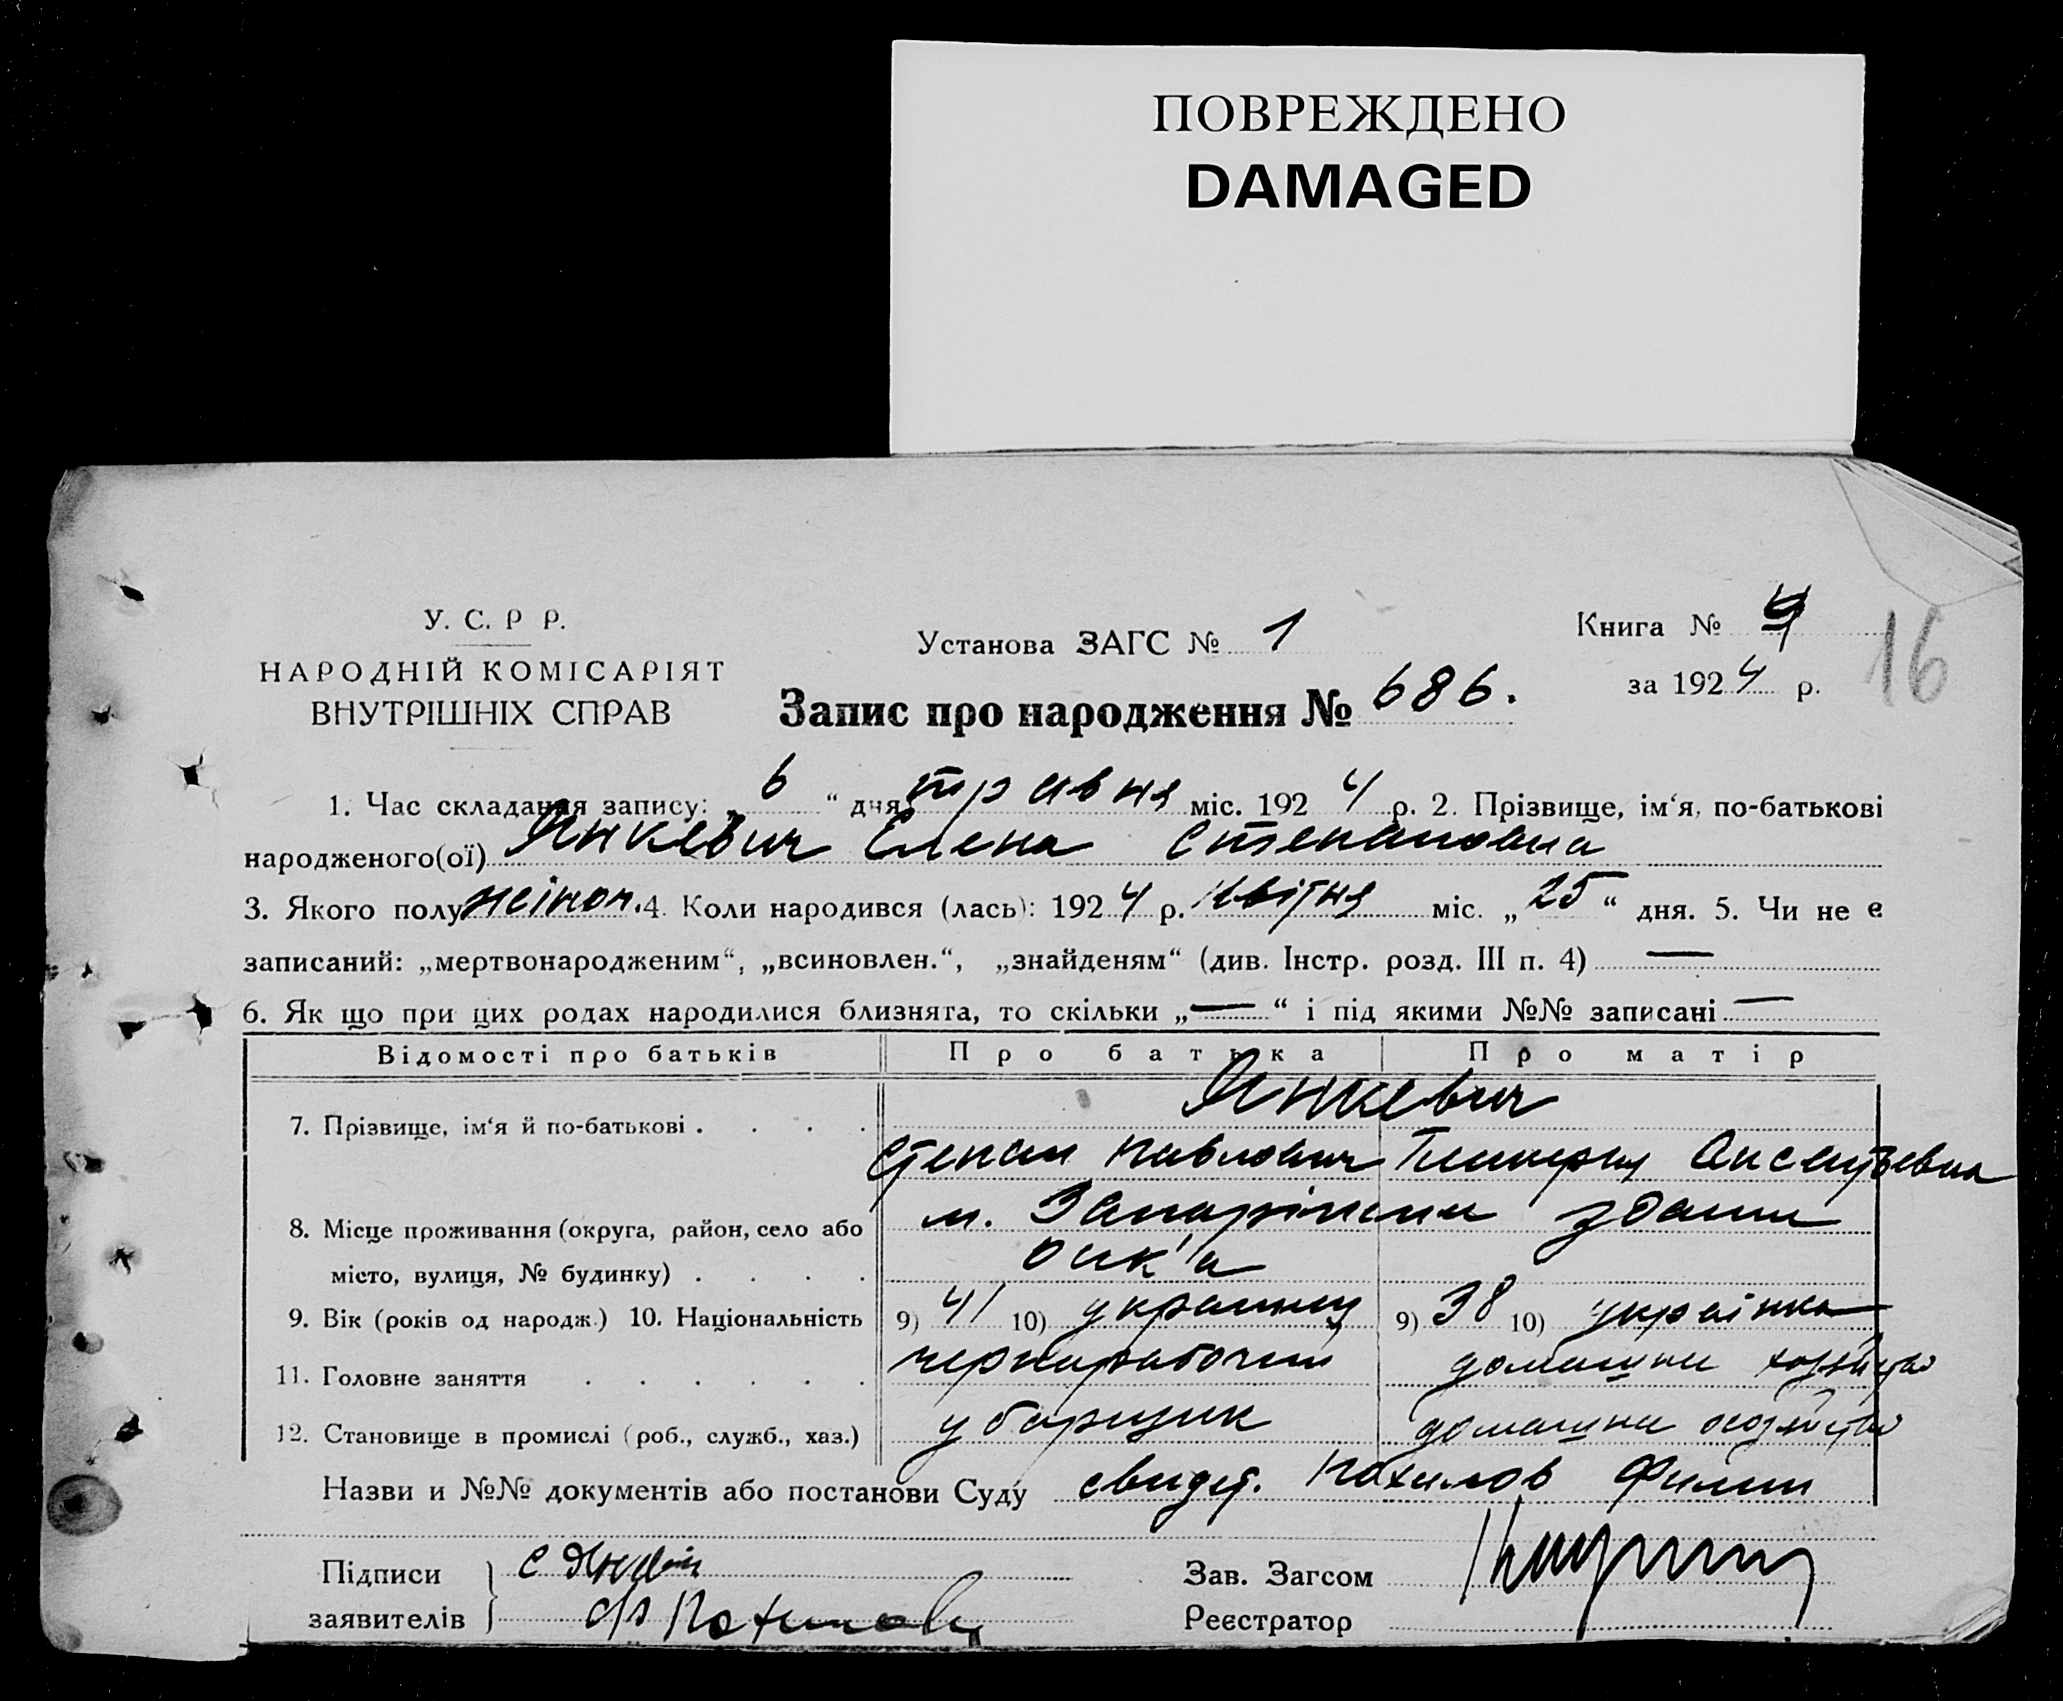 ПОВРЕЖДЕНО
DAMAGED
У. С. Р Р.
НАРОДНІЙ КОМІСАРІЯТ
ВНУТРІШНІХ СПРАВ
Установа ЗАГС № 1
Книга №
за 1924 р.
16
Запис про народження № 686.
1. Час складання запису: „ 6 “ дня травня міс. 1924 р. 2. Прізвище, ім‘я, по-батькові
народженого(ої) Янкевич Елена Степановна
3. Якого полу жіноч. 4. Коли народився (лась): 1924 р. квітня міс. „ 25 “ дня. 5. Чи не є
записаний: „мертвонародженим“, „всиновлен.“, „знайденям“ (див. Інстр. розд. III п. 4) —
6. Як що при цих родах народилися близняга, то скільки „—“ і під якими №№ записані —
Відомості про батьків Про батька Про матір
7. Прізвище, ім‘я й по-батькові . . . . Янкевич
Степан Павлович
8. Місце проживання (округа, район, село або м.
місто, вулиця, № будинку) . . . .
9. Вік (років од народж.) 10. Національність 9) 41 10) украинец 9) 38 10) українка
11. Головне заняття . . . . . . чернорабочий домашне
12. Становище в промислі (роб., служб., хаз.) уборщик домашне
Назви и №№ документів або постанови Суду свидет. Похилов Филип
Підписи
заявителів
Зав. Загсом
Реєстратор